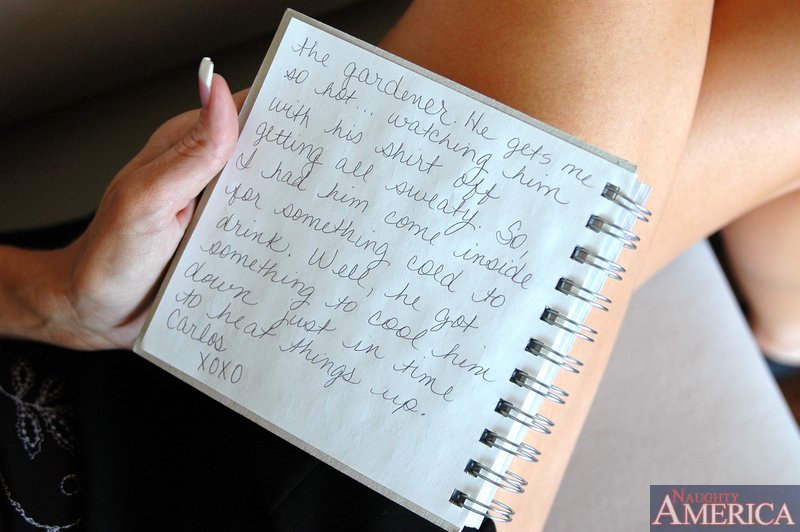 the gardener. He gets me
so hot... watching him
with his shirt off
getting all sweaty. So,
I had him come inside
for something cold to
drink. Well, he got
something to cool him
down just in time
to heat things up.
Carlos
XOXO
NAUGHTY
AMERICA